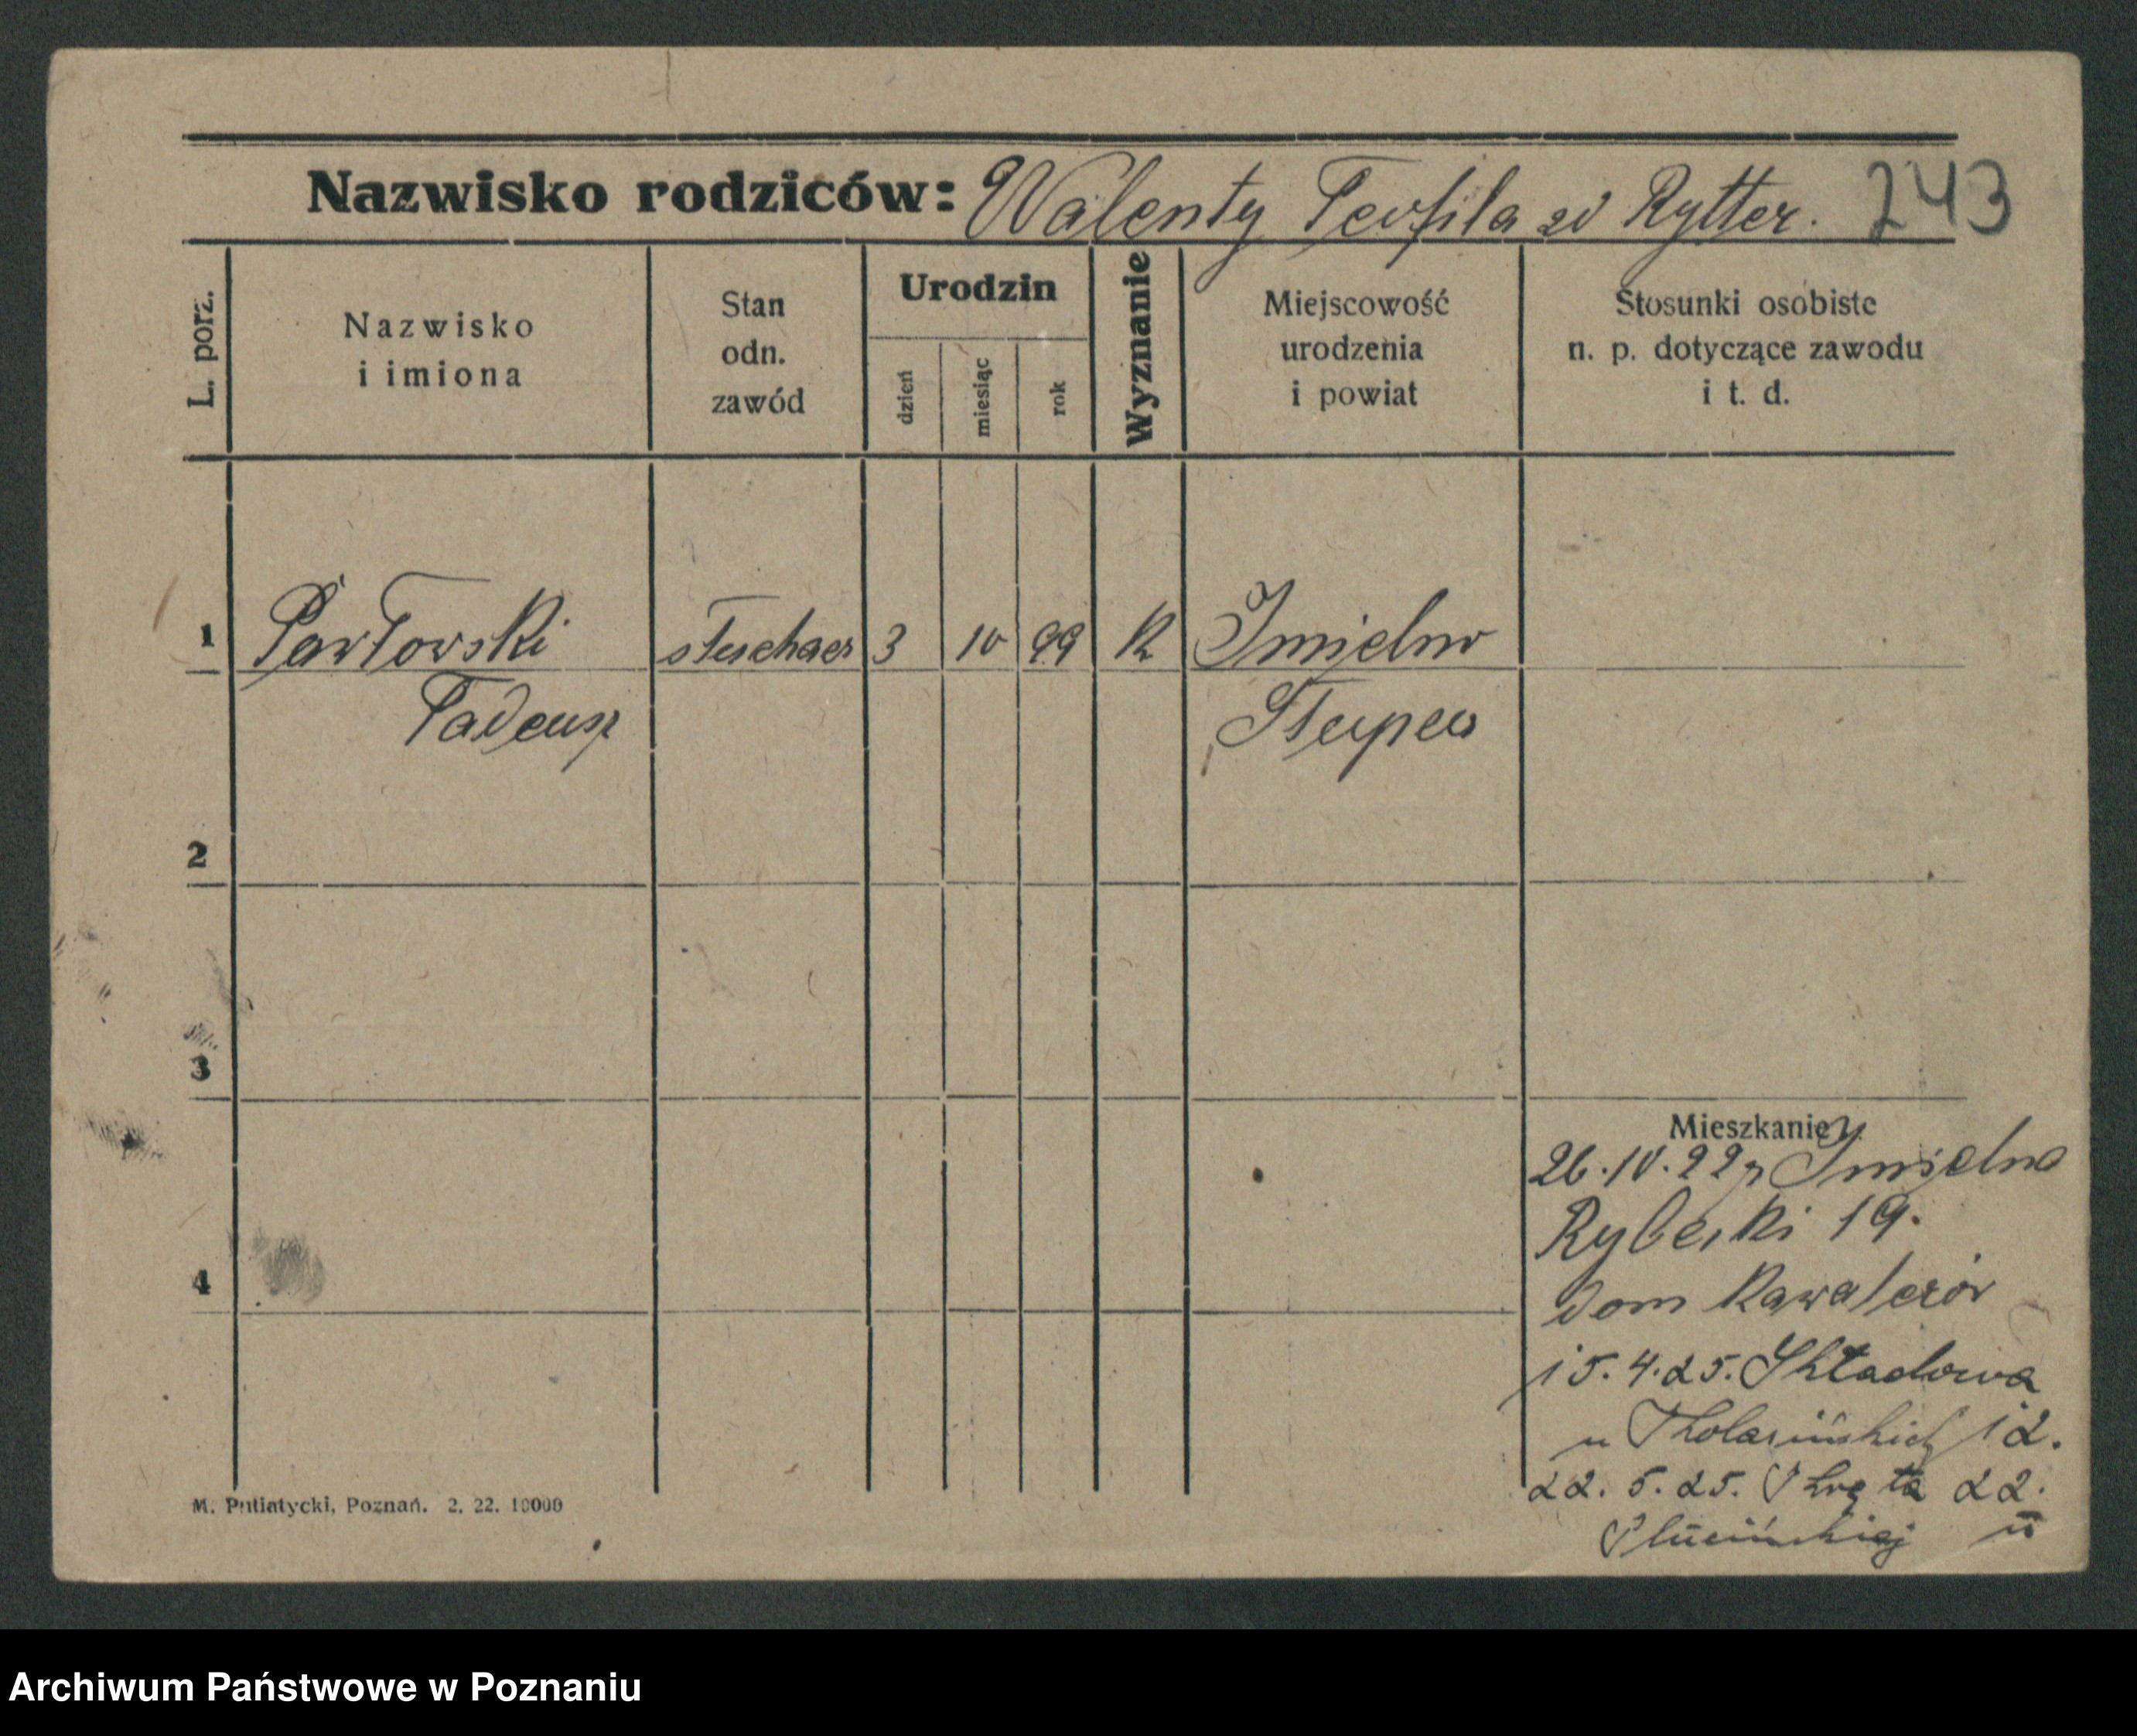 Nazwisko rodziców: Walenty Teofila zd Rytter. 243
L. porz.
Nazwisko
i imiona
Stan
odn.
zawód
Urodzin
dzień
miesiąc
rok
Wyznanie
Miejscowość
urodzenia
i powiat
Stosunki osobiste
n. p. dotyczące zawodu
i t. d.
1 Pawłowski słuchacz 3 10 99 K Imielno
Tadeusz Słupca
2
3
4
Mieszkanie
26.10.22 z Imielna
Rybaki 19.
dom Kawalerów
15.4.25. Składowa
u 12.
22. 5. 25. Kręta 22.
Plucińskiej u
M. Putiatycki, Poznań. 2. 22. 10000
Archiwum Państwowe w Poznaniu